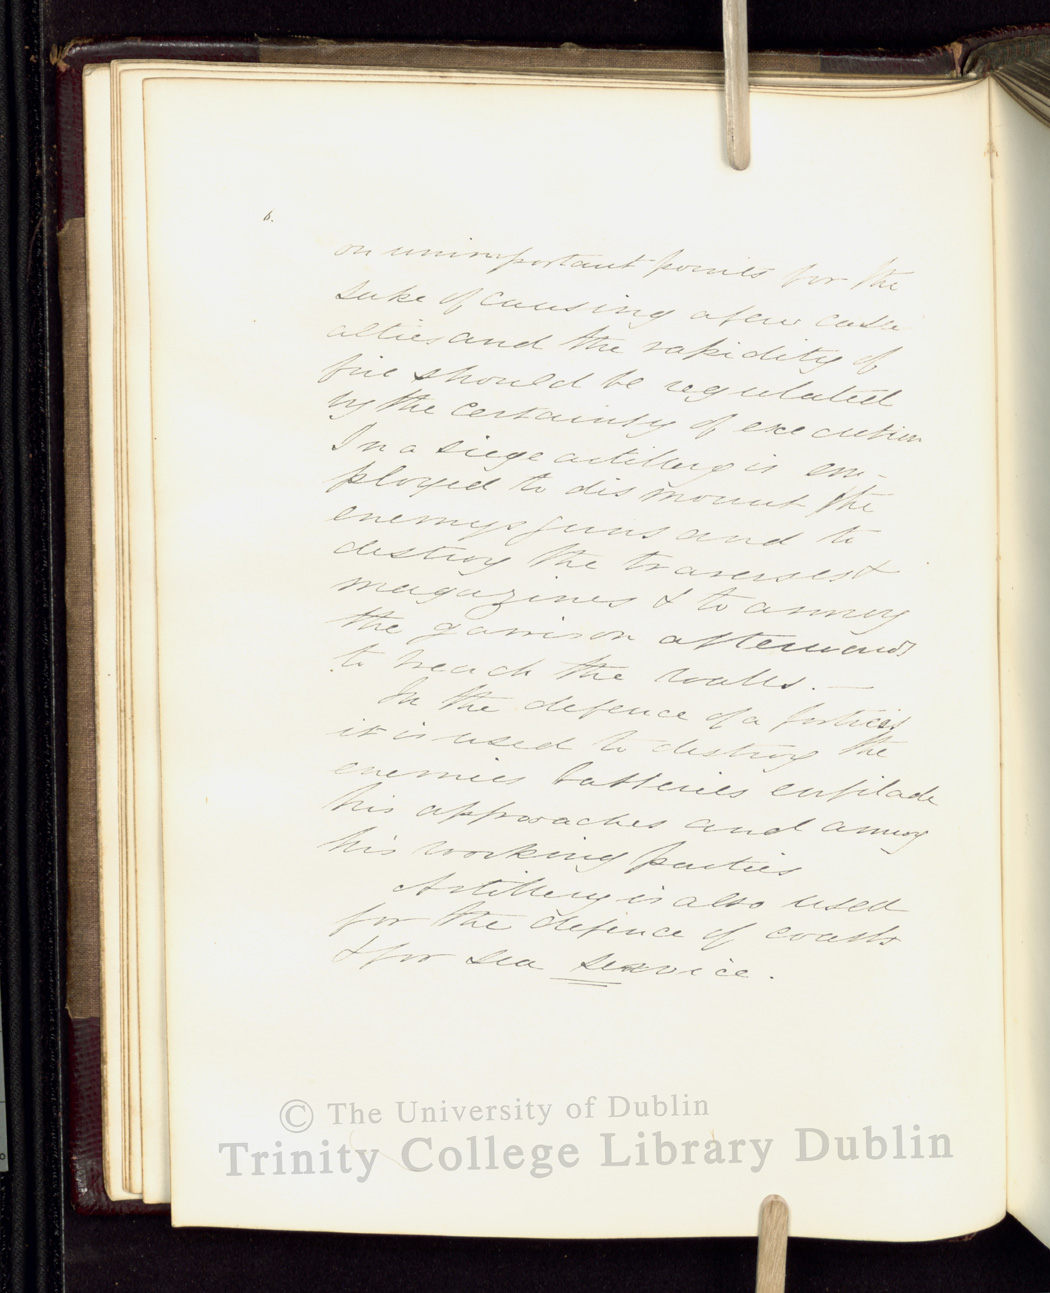 6.
on unimportant points for the
sake of causing a few casu
alties and the rapidity of
fire should be regulated
by the certainty of execution
In a siege artillery is em-
ployed to dismount the
enemys guns and to
destroy the traverses &
magazines & to annoy
the garrison afterwards
to breach the walls. —
In the defence of a fortress
it is used to destroy the
enemies batteries enfilade
his approaches and annoy
his working parties
Artillery is also used
for the defence of coasts
& for sea service.
© The University of Dublin
Trinity College Library Dublin